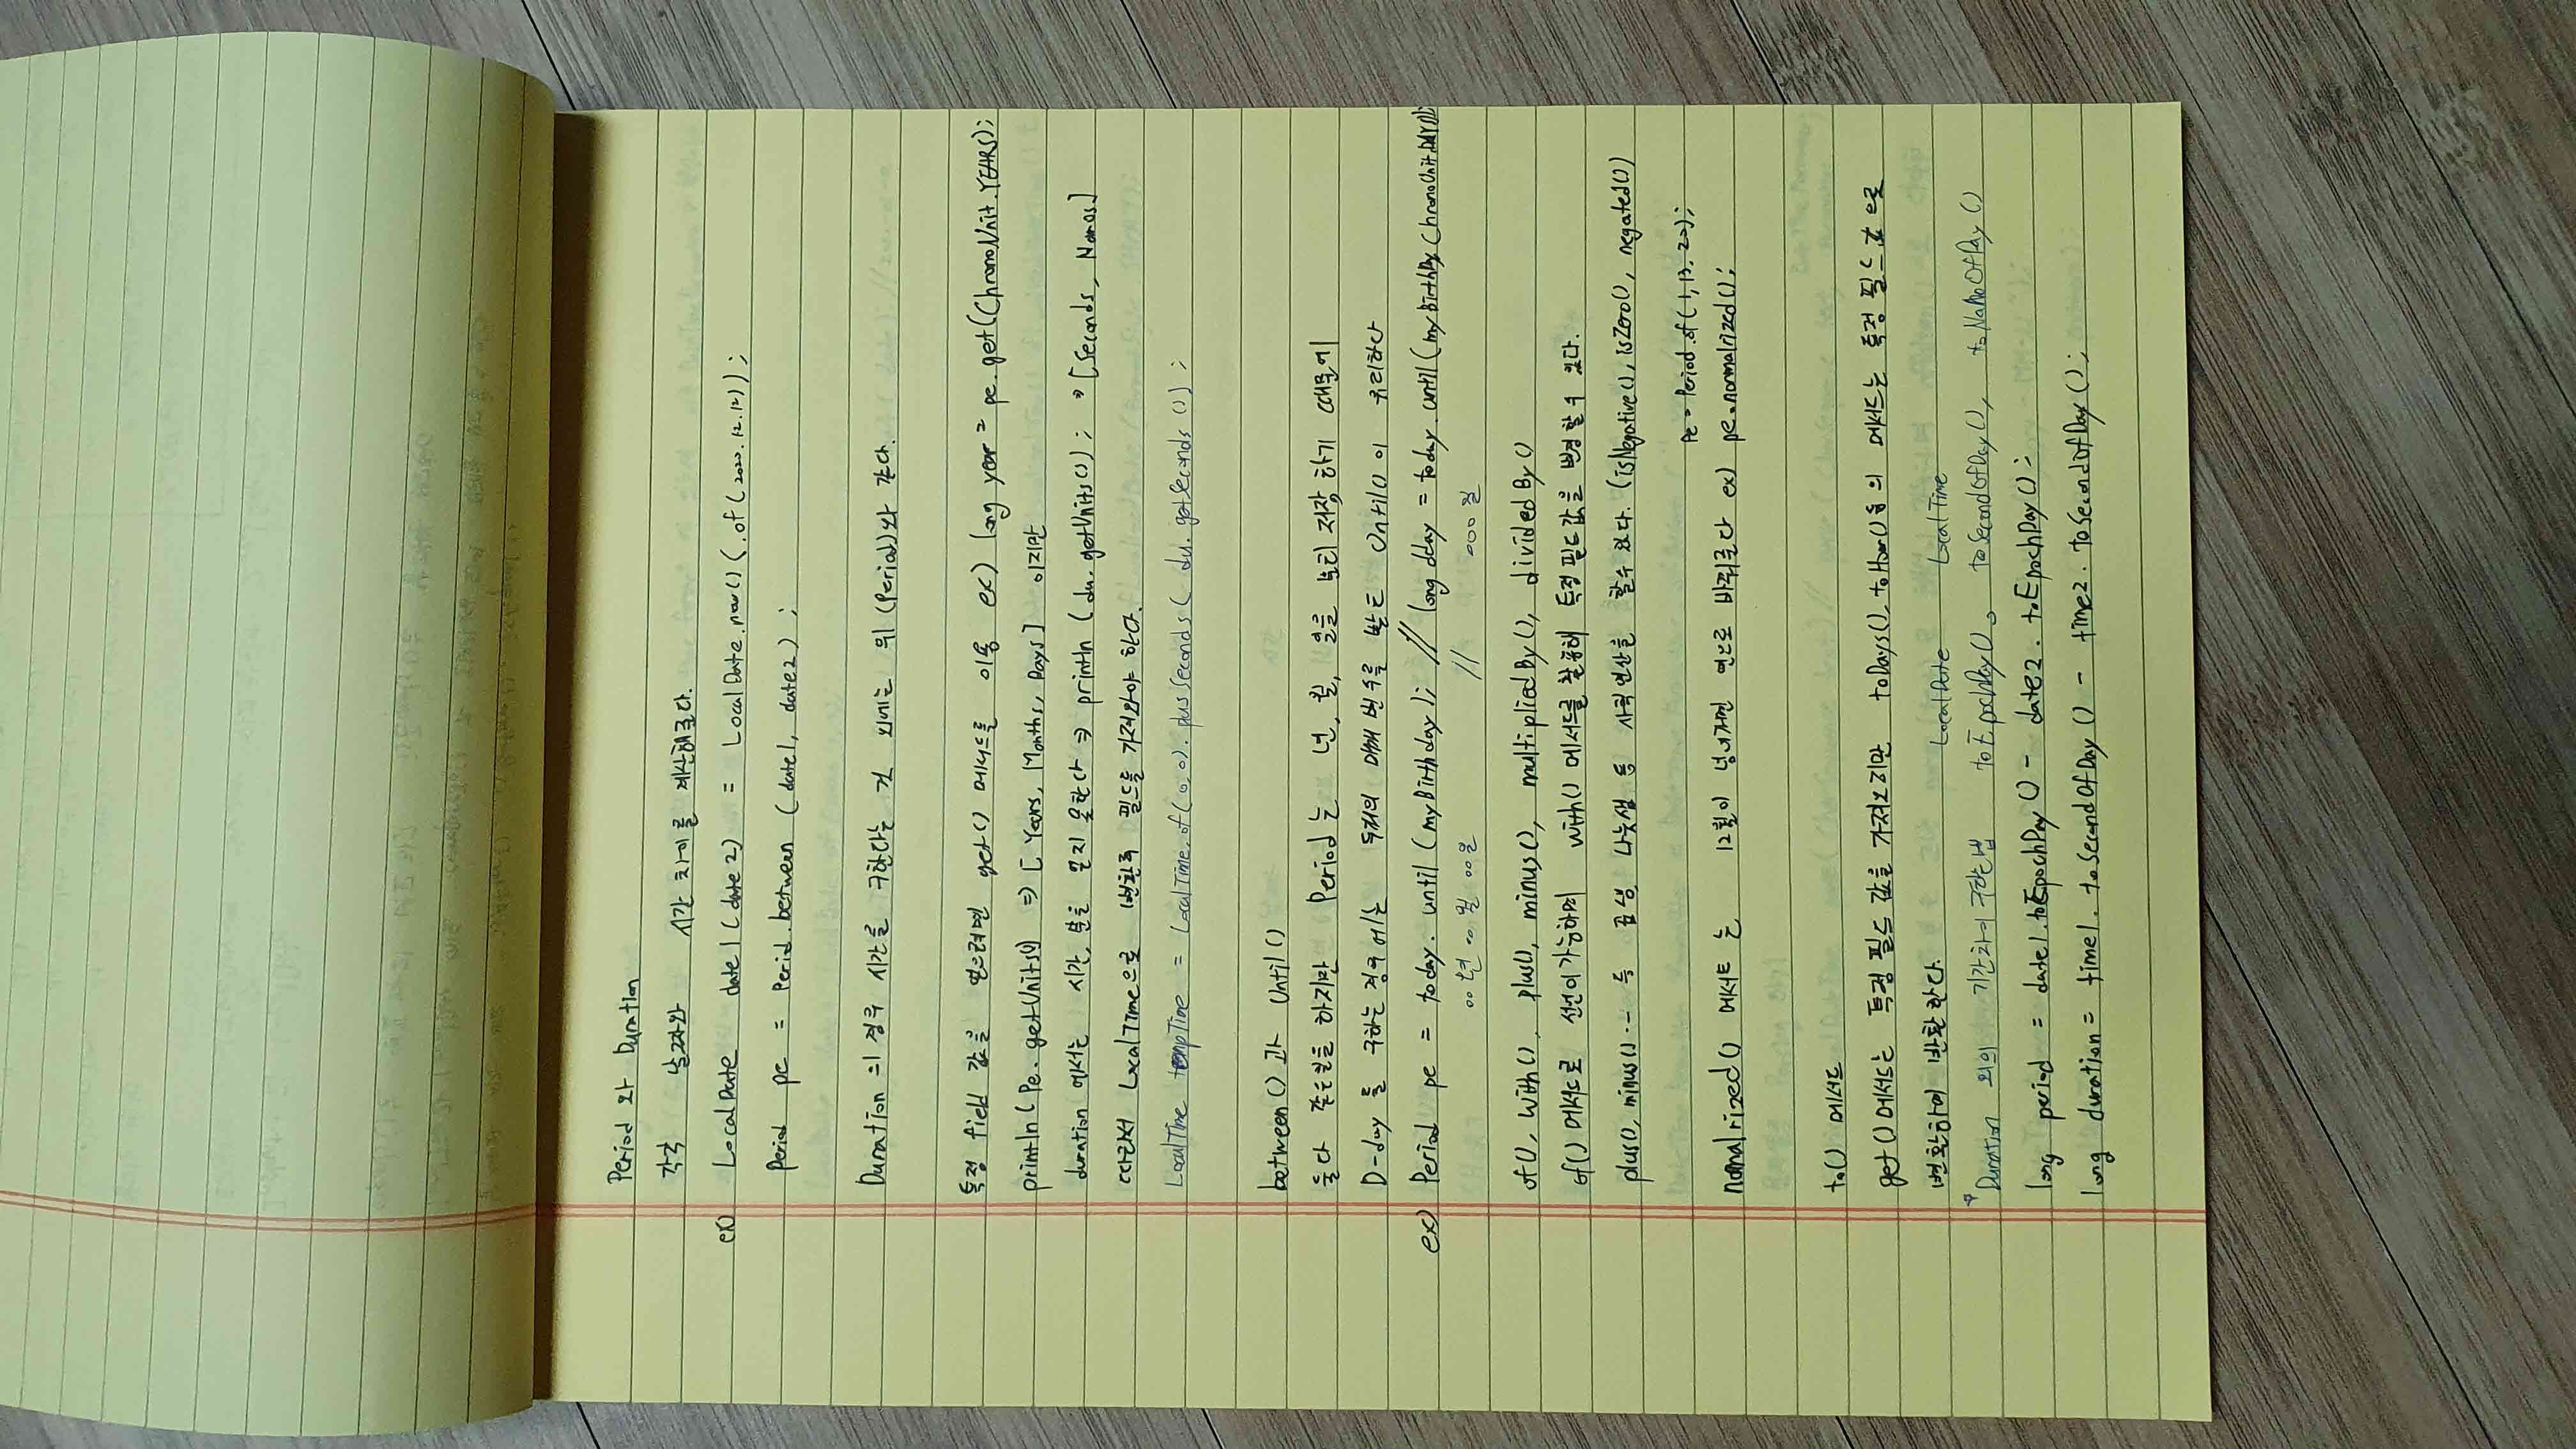 Period 와 Duration
각각 날짜와 시간 차이를 계산해준다.
ex) LocalDate date1 (date2) = LocalDate.now() (.of(2020.12.12));
Period pe = Perid.between (date1, date2);
Duration 의 경우 시간를 구한다는 것 외에는 위 (Period)와 같다.
특정 field 값을 얻으려면 get() 메서드를 이용 ex) long year = pe.get(ChronoUnit.YEARS);
println(Pe.getUnits()) ⇒ [Years, Months, Days] 이지만
duration 에서는 시간, 분을 얻지 못한다 ⇒ println (du.getUnits()); ⇒ [Seconds, Nanos]
따라서 LocalTime으로 변환후 필드를 가져와야 한다.
LocalTime tempTime = LocalTime.of(0,0).plusSeconds( du.getSeconds());
between() 과 Until()
둘다 같은일을 하지만 Period 는 년, 월, 일을 분리 저장 하기 때문에
D-day 를 구하는 경우에는 두개의 매개 변수를 받는 Until() 이 유리하다
ex) Period pe = today.until (myBirthday); // long dday = today.until(myBirthDay, ChronoUnit.DAYS);
○○년 ○○월 ○○일 // ○○○일
of(), With(), plus(), minus(), multipliedBy(), dividedBy()
of() 메서드로 선언이 가능하며 with() 메서드를 활용해 특정 필드값을 변경 할 수 있다.
plus(), minus() ·· 등 곱셈 나눗셈 등 사칙연산을 할수 있다. (isNegative(), isZero(), negated())
Pe = Period.of(1,13,20);
nomalrized() 메서드 는 12월이 넘어가면 연으로 바꿔준다 ex) pe.normalrized();
to() 메서드
get() 메서드는 특정 필드 값을 가져오지만 toDays(), toHour() 등의 메서드는 특정 필드 값으로
변환하여 반환 한다.
LocalDate LocalTime
Duration 외의 기간차이 구하는법 toEpochDay(), toSecondOfDay(), toNanoOfDay()
long period = date1.toEpochDay() - date2.toEpochDay();
long duration = time1.toSecondOfDay() - time2.toSecondOfDay();